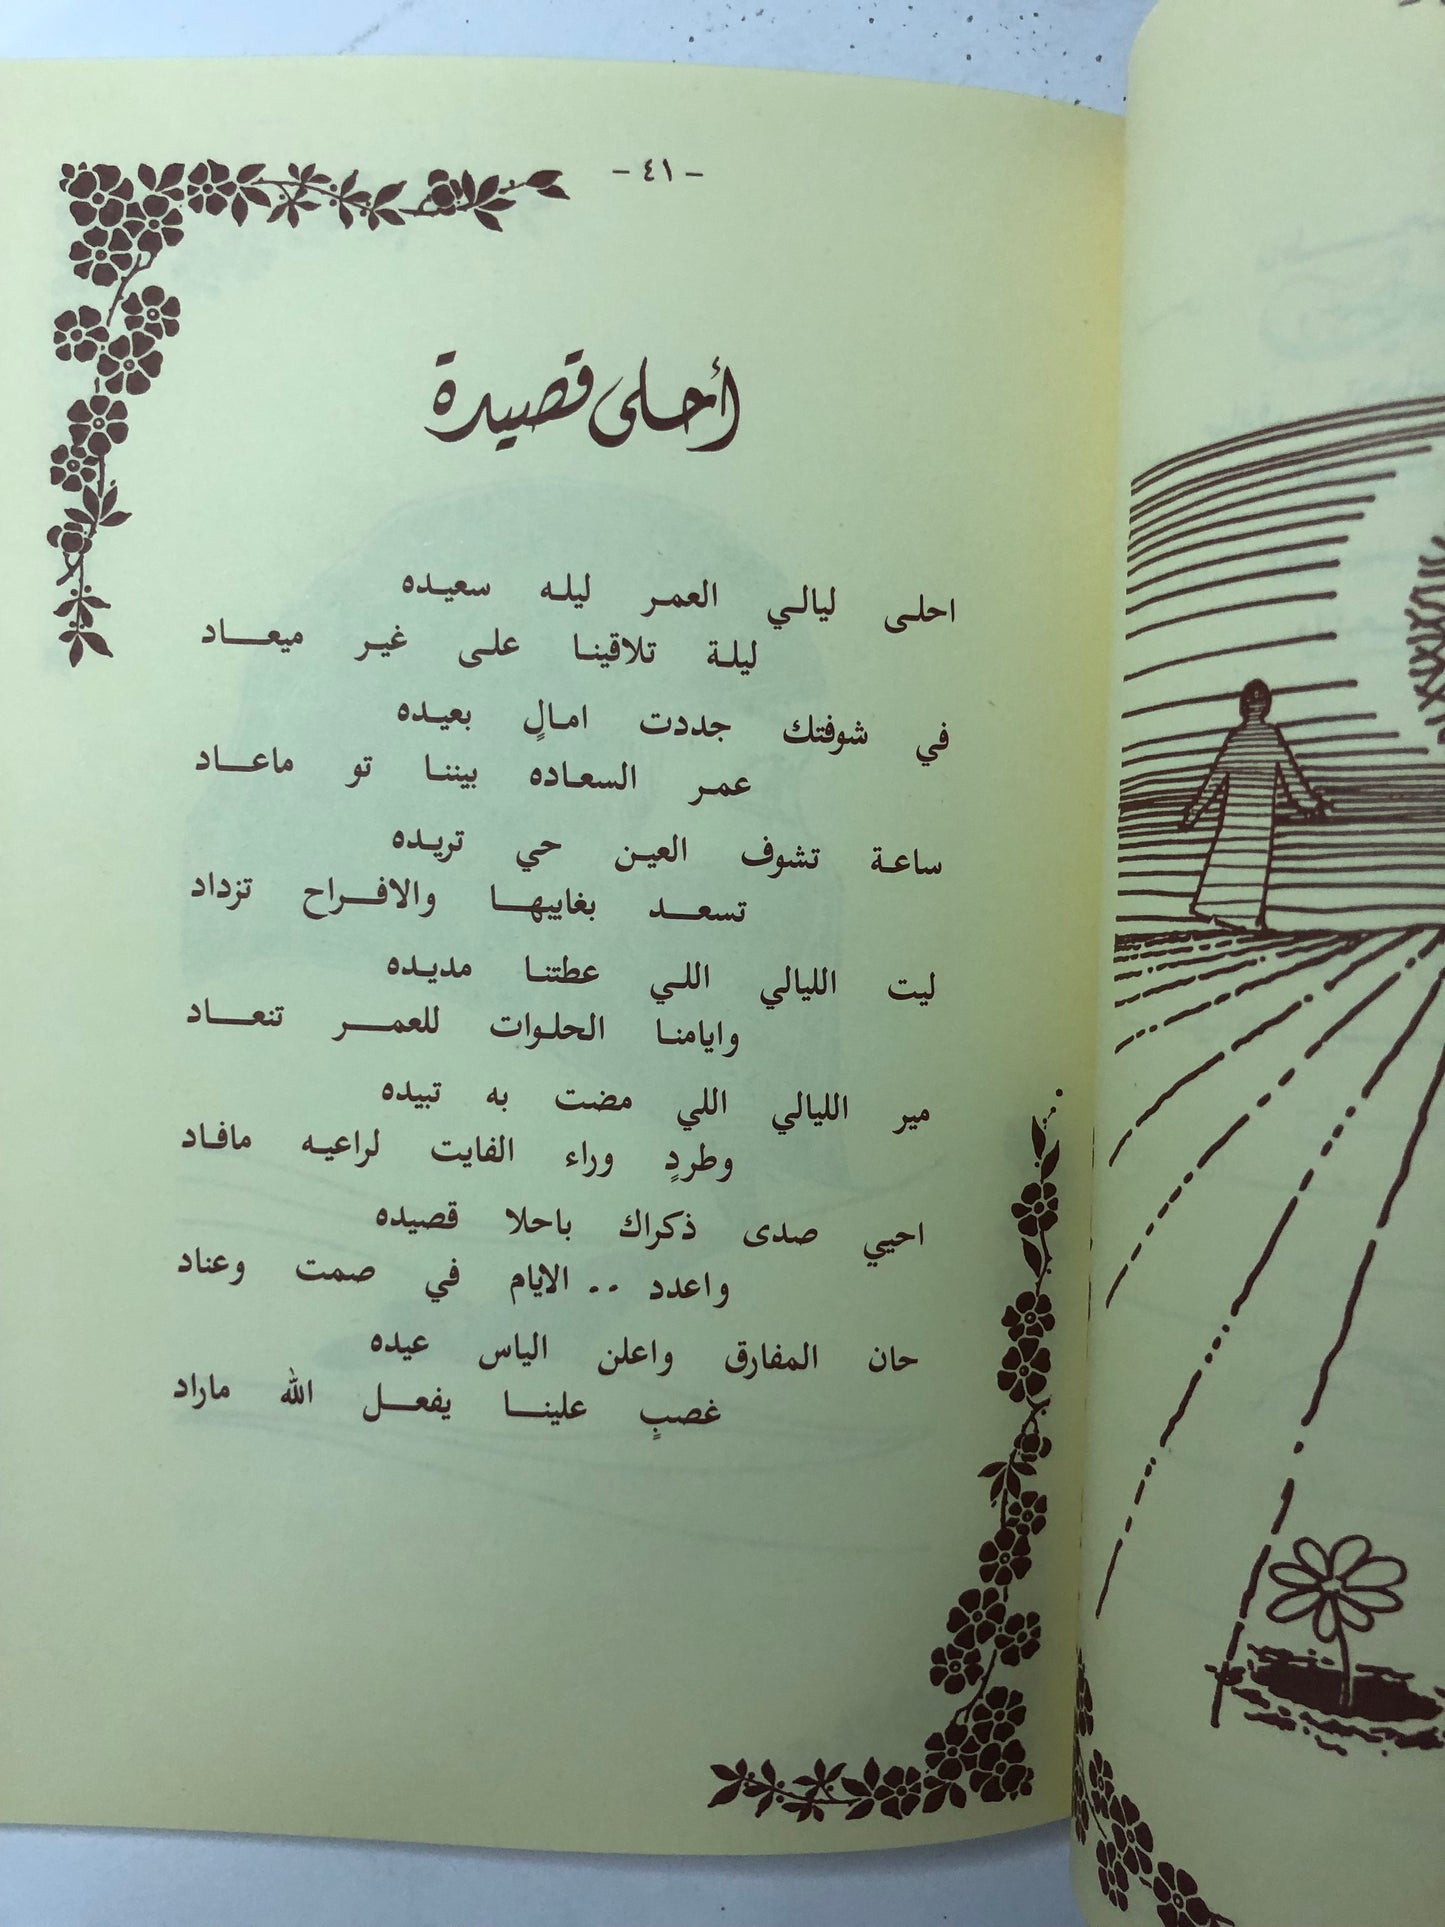 - ٤١ -
أحلى قصيدة
احلى ليالي العمر ليله سعيده
ليلة تلاقينا على غير ميعاد
في شوفتك جددت امالٍ بعيده
عمر السعاده بيننا تو ماعاد
ساعة تشوف العين حي تريده
تسعد بغاييها والافراح تزداد
ليت الليالي اللي عطتنا مديده
وايامنا الحلوات للعمر تنعاد
مير الليالي اللي مضت به تبيده
وطردٍ وراء الفايت لراعيه مافاد
احيي صدى ذكراك باحلا قصيده
واعدد .. الايام في صمت وعناد
حان المفارق واعلن الياس عيده
غصبٍ علينا يفعل الله ماراد